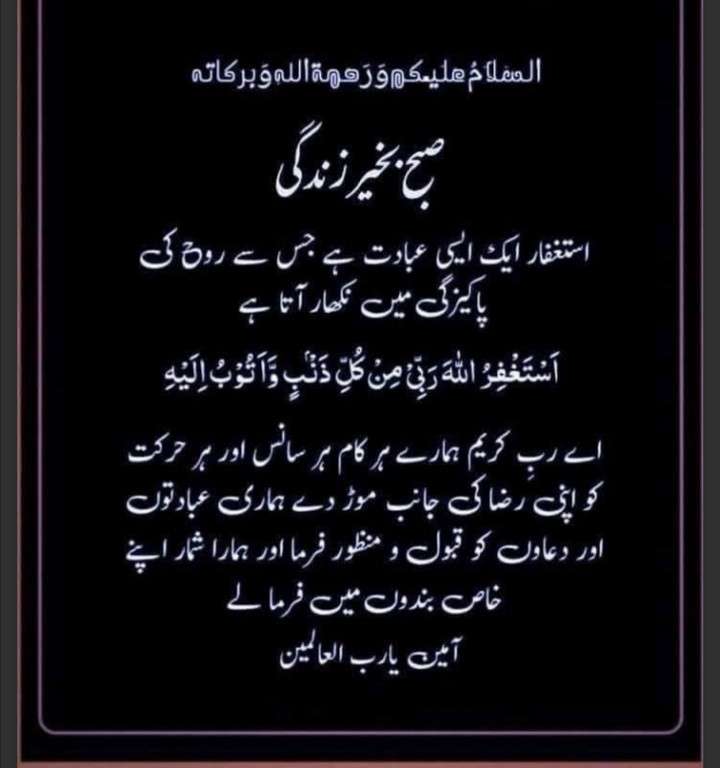 السلامُ علیکم وَرَحمۃاللہ وَبرکاتہ
صبح بخیر زندگی
استغفار ایک ایسی عبادت ہے جس سے روح کی
پاکیزگی میں نکھار آتا ہے
اَسْتَغْفِرُ اللهَ رَبِّیْ مِنْ کُلِّ ذَنْۢبٍ وَّاَتُوْبُ اِلَیْهِ
اے ربِ کریم ہمارے ہر کام ہر سانس اور ہر حرکت
کو اپنی رضا کی جانب موڑ دے ہماری عبادتوں
اور دعاوں کو قبول و منظور فرما اور ہمارا شمار اپنے
خاص بندوں میں فرما لے
آمین یارب العالمین